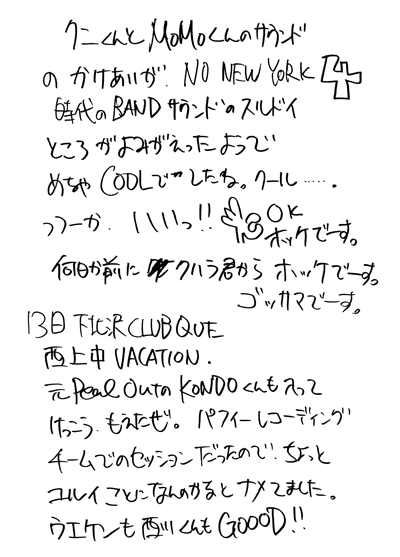 クニくんと MoMoくんのサウンド
の かけあいが. NO NEW YORK
時代の BAND サウンドの ズルドイ
ところ がよみがえったようで
めちゃ COOLで したね。クール ‥‥.
っつーか. いいいっ!! OK
ホッケでーす。
何日か前に クハラ君から ホッケでーす。
ゴッカマでーす。
13日 下北沢 CLUB QUE
西上中 VACATION.
元 Pealoutの KONDOくんも入って
けっこう. もえたぜ。パフィーレコーディング
チームでのセッションだったので. ちょっと
ユルイことになんのかなと ナメてました。
ウエケンも 西川くんも GOOOD!!